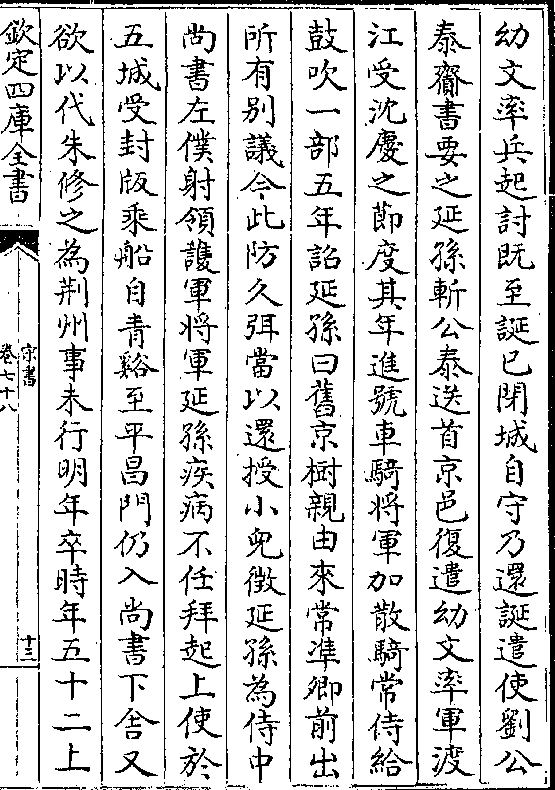 幼文率兵起討既至誕已閉城自守乃還誕遣使劉公
泰齎書要之延孫斬公泰送首京邑復遣幼文率軍渡
江受沈慶之節度其年進號車騎将軍加散騎常侍給
鼓吹一部五年詔延孫曰舊京樹親由來常準卿前出
所有别議今此防久弭當以還授小兒徵延孫為侍中
尚書左僕射領護軍將軍延孫疾病不任拜起上使於
五城受封版乘船自青谿至平昌門仍入尚書下舍又
欲以代朱修之為荆州事未行明年卒時年五十二上
欽定四庫全書
宋書
卷七十八
十三